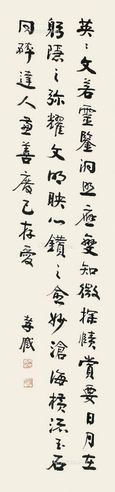 英〻文若靈鑒洞照應變知微探賾賞要日月在
躬隱之彌耀文明映心鑽之愈妙滄海橫流玉石
同碎達人兼善廢己存愛
孝臧